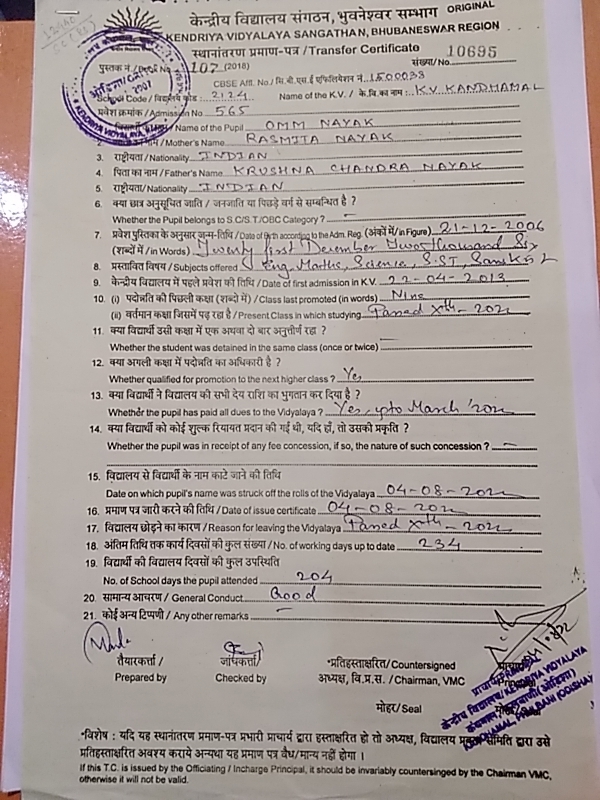 केन्द्रीय विद्यालय संगठन, भुवनेश्वर सम्भाग ORIGINAL
KENDRIYA VIDYALAYA SANGATHAN, BHUBANESWAR REGION
स्थानांतरण प्रमाण-पत्र / Transfer Certificate
पुस्तक नं / Book No 107 (2018) संख्या/No. 10695
CBSE Affl. No / सि.बी.एस.ई एफिलियेशन नं. 1500033
School Code / विद्यालय कोड : 2124 Name of the K.V. / के.वि.का नाम : K.V. KANDHAMAL
प्रवेश क्रमांक / Admission No 565
Name of the Pupil OMM NAYAK
2. Mother's Name RASMITA NAYAK
3. राष्ट्रीयता / Nationality INDIAN
4. पिता का नाम / Father's Name KRUSHNA CHANDRA NAYAK
5. राष्ट्रीयता / Nationality INDIAN
6. क्या छात्र अनुसूचित जाति / जनजाति या पिछड़े वर्ग से सम्बन्धित है ?
Whether the Pupil belongs to S.C/S.T./OBC Category ? –
7. प्रवेश पुस्तिका के अनुसार जन्म-तिथि / Date of Birth according to the Adm. Reg. (अंकों में/in Figure) 21-12-2006
(शब्दों में / in Words) Twenty first December Two thousand Six
8. प्रस्तावित विषय / Subjects offered Eng, Maths, Science, S.ST, Sanskrit
9. केन्द्रीय विद्यालय में पहले प्रवेश की तिथि / Date of first admission in K.V. 22-04-2013
10. (i) पदोन्नति की पिछली कक्षा (शब्दो में) / Class last promoted (in words) Nine
(ii) वर्तमान कक्षा जिसमें पढ़ रहा है / Present Class in which studying Passed Xth-2022
11. क्या विद्यार्थी उसी कक्षा में एक अथवा दो बार अनुत्तीर्ण रहा ?
Whether the student was detained in the same class (once or twice) –
12. क्या अगली कक्षा में पदोन्नति का अधिकारी है ?
Whether qualified for promotion to the next higher class ? Yes
13. क्या विद्यार्थी ने विद्यालय की सभी देय राशि का भुगतान कर दिया है ?
Whether the pupil has paid all dues to the Vidyalaya ? Yes, upto March '2022
14. क्या विद्यार्थी को कोई शुल्क रियायत प्रदान की गई थी, यदि हाँ, तो उसकी प्रकृति ?
Whether the pupil was in receipt of any fee concession, if so, the nature of such concession ? –
15. विद्यालय से विद्यार्थी के नाम काटे जाने की तिथि
Date on which pupil's name was struck off the rolls of the Vidyalaya 04-08-2022
16. प्रमाण पत्र जारी करने की तिथि / Date of issue certificate 04-08-2022
17. विद्यालय छोड़ने का कारण / Reason for leaving the Vidyalaya Passed Xth-2022
18. अंतिम तिथि तक कार्य दिवसों की कुल संख्या / No. of working days up to date 234
19. विद्यार्थी की विद्यालय दिवसों की कुल उपस्थिति
No. of School days the pupil attended 204
20. सामान्य आचरण / General Conduct Good
21. कोई अन्य टिप्पणी / Any other remarks –
तैयारकर्त्ता / जांचकर्त्ता/ *प्रतिहस्ताक्षरित/ Countersigned
Prepared by Checked by अध्यक्ष, वि.प्र.स. / Chairman, VMC
मोहर/Seal
*विशेष : यदि यह स्थानांतरण प्रमाण-पत्र प्रभारी प्राचार्य द्वारा हस्ताक्षरित हो तो अध्यक्ष, विद्यालय प्रबन्ध समिति द्वारा उसे
प्रतिहस्ताक्षरित अवश्य कराये अन्यथा यह प्रमाण पत्र वैध/मान्य नहीं होगा ।
If this T.C. is issued by the Officiating / Incharge Principal, it should be invariably countersigned by the Chairman VMC,
otherwise it will not be valid.